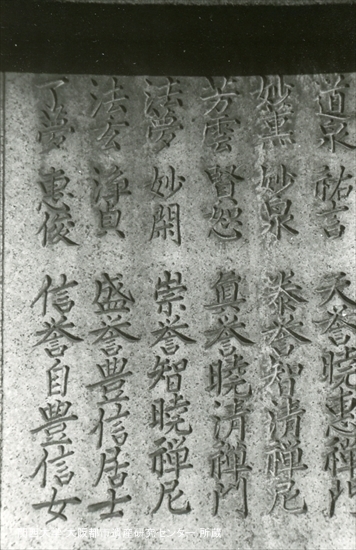 道泉 祐言 天誉暁恵禅門
妙薫 妙泉 泰誉智清禅尼
芳雲 賢恕 真誉暁清禅門
法夢 妙閑 崇誉智暁禅尼
法玄 浄貞 盛誉豊信居士
了夢 恵俊 信誉自豊信女
大阪都市遺産研究センター所蔵